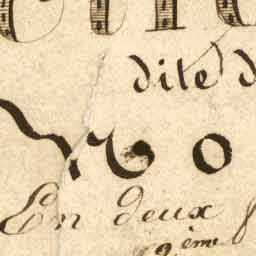 dite d
No
En deux f
2ème